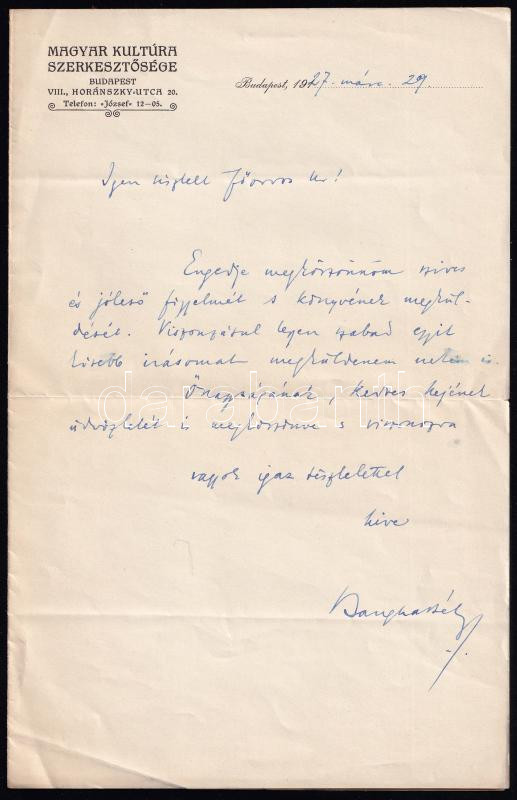 MAGYAR KULTÚRA
SZERKESZTŐSÉGE
BUDAPEST
VIII., HORÁNSZKY-UTCA 20.
Telefon: «József» 12—05.
Budapest, 1927. márc. 29.
Igen tisztelt Főorvos Ur!
Engedje megköszönnöm szives
és jóleső figyelmét s könyvének megkül-
dését. Viszonzásul legyen szabad egyik
kisebb irásomat megküldenem nekem is.
Önagyságának, kedves nejének
üdvözletét is megköszönve s viszonozva
vagyok igaz tisztelettel
hive
Bangha Béla
darabanth